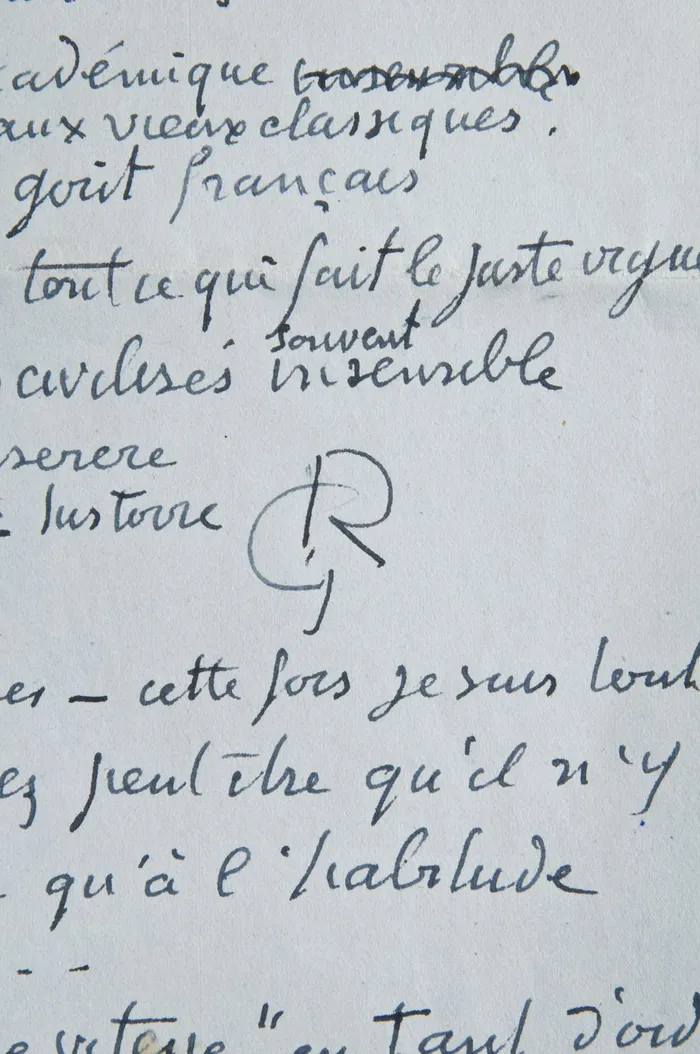 adémique
aux vieux classiques.
goût français
tout ce qui fait le juste
civilisés souvent insensible
serere
histoire
GR
er — cette fois je suis tout
ez peut être qu'il n'y
qu'à l'habitude
- -
vitesse" en tant d'